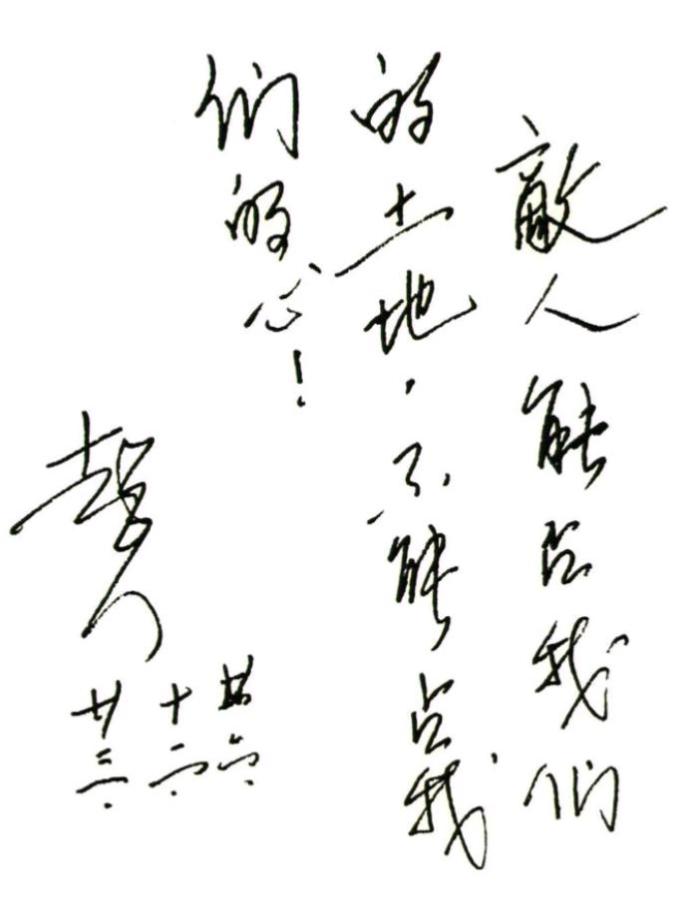 敵人能占我们
的土地，不能占我
们的心！
廿六.
十二.
廿三.